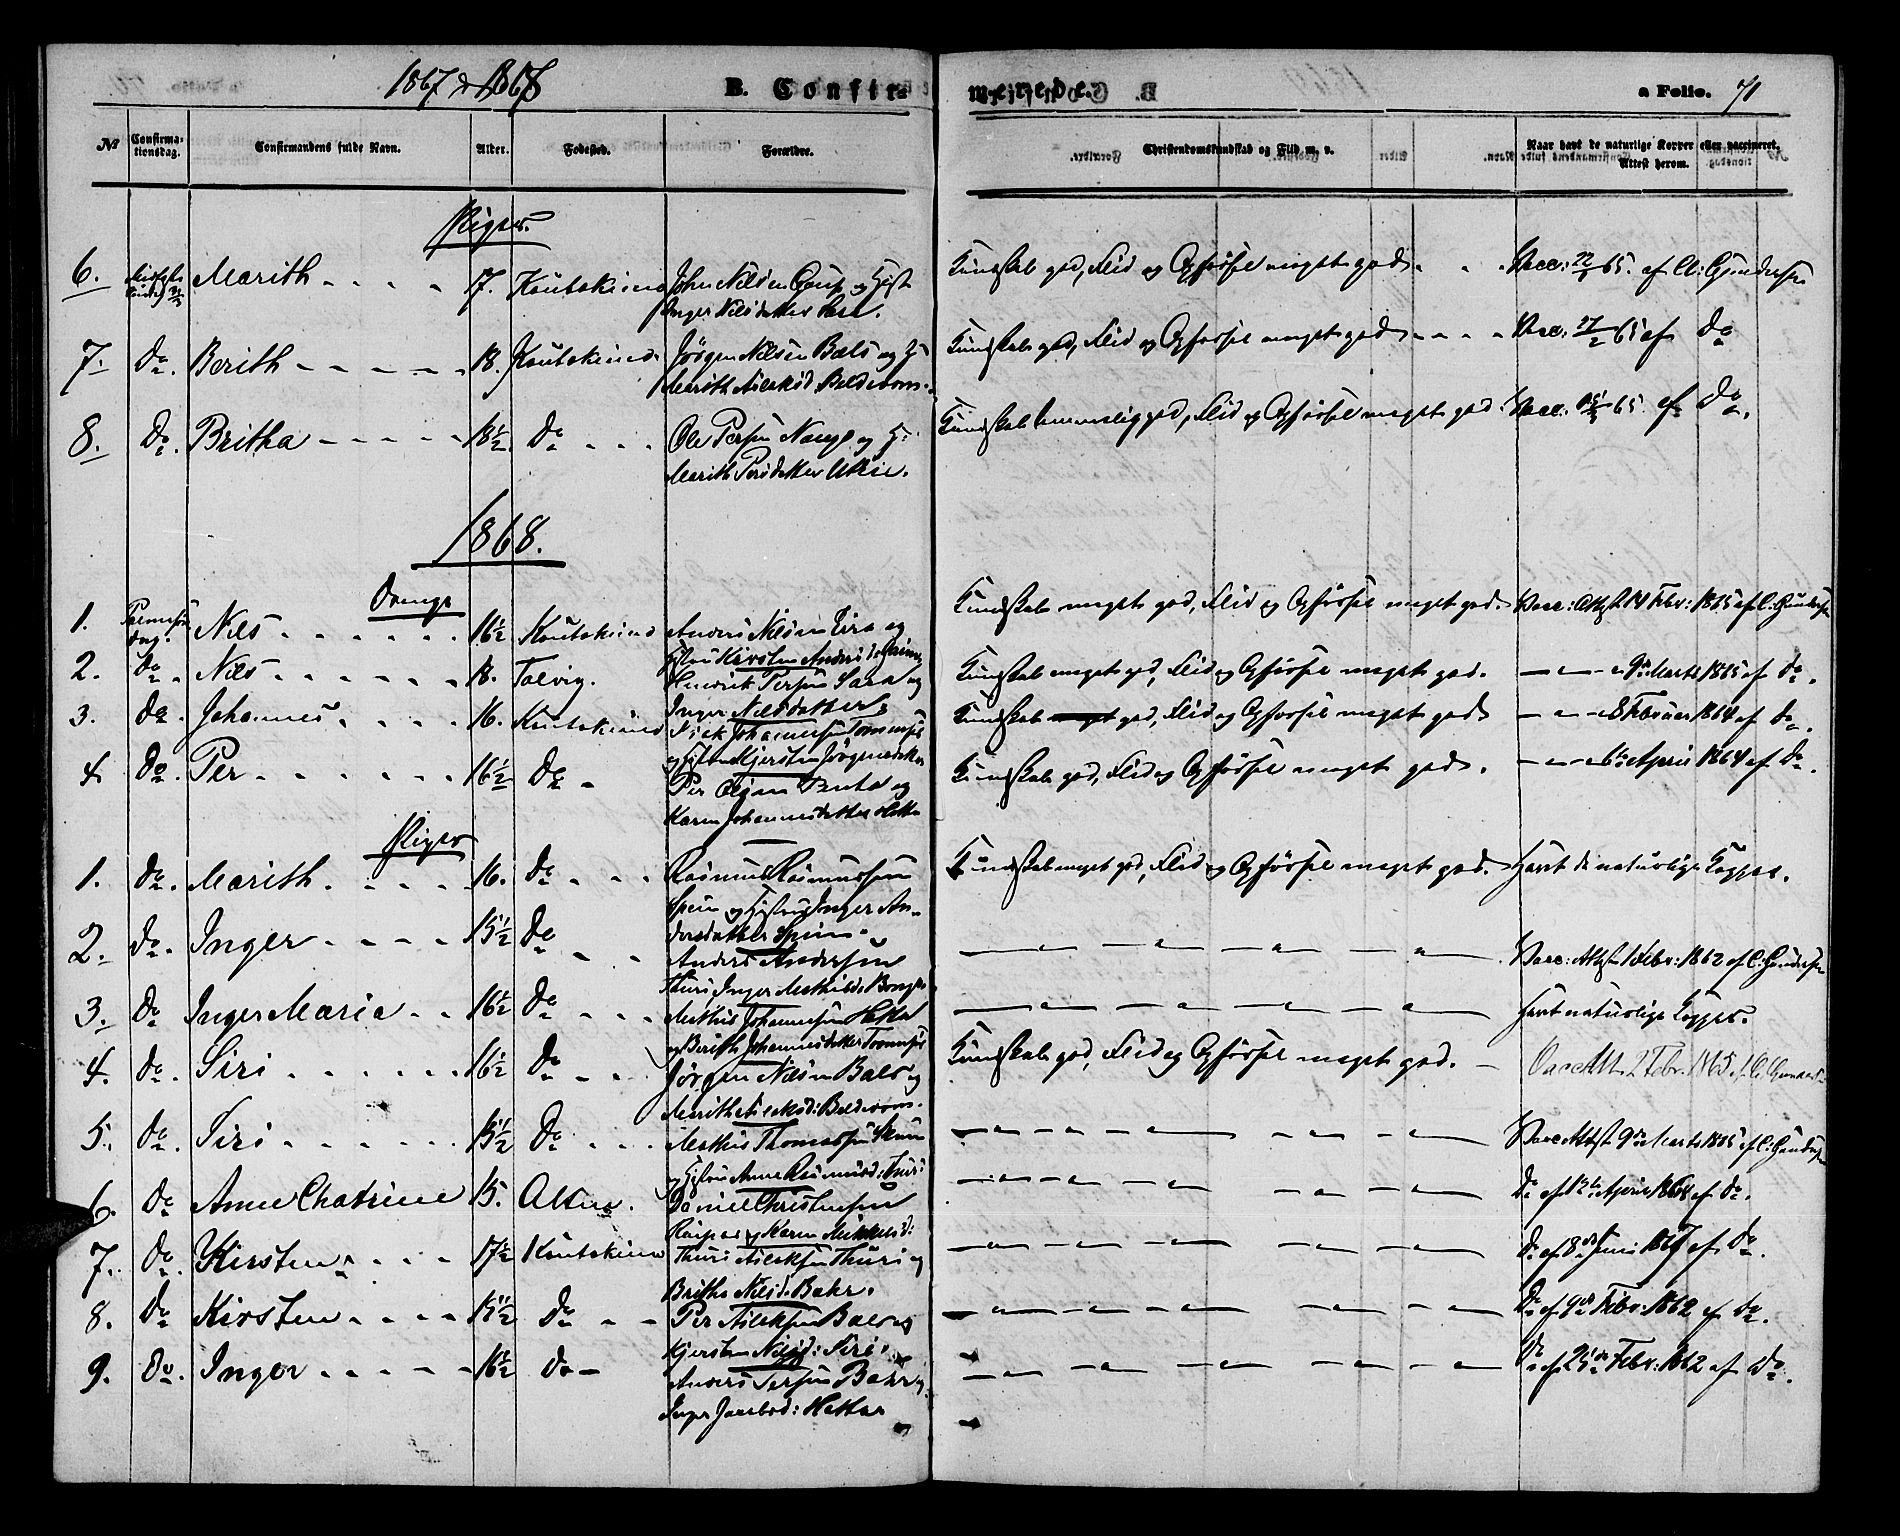 1867 & 1868
B. Confirmerede.
a Folio. 71
No
Confirmationsdag.
Confirmandens fulde Navn.
Alder.
Fødested.
Forældre.
Christendomskundskab og Flid m. v.
Naar havt de naturlige Kopper eller vaccineret. Attest herom.
Piger.
6. Marith 17. Koutokeino John Nilsen Gaup og Hust Kundskab god, Flid og Opførsel meget god. Vacc: 22/ 65. af C: Gundersen
Inger Nilsdatter
7. do. Berith 18. Koutokeino Jørgen Nilsen Bals og H: Kundskab god, Flid og Opførsel meget god Vacc: 27/2 65 af do
Marith Aslaksd:
8. do. Britha 18½ do Ole Persen og H: Kundskab temmelig god, Flid og Opførsel meget god. Vacc: 65. af do.
Marith Persdatter Utsie.
1868.
Drenge
1. dag. Nils 16½ Koutokeino Anders Nilsen og Kundskab meget god, Flid og Opførsel meget god. Vacc: Attest 14 Febr: 1865 af C: Gundersen
Hustru Kirsten Andersd:
2. do. Nils 18. Talvig. Henrik Persen Sara og Kundskab meget god, Flid og Opførsel meget god. — — 9de Marts 1865 af do.
Inger Nilsdatter
3. do. Johannes 16. Koutokeino Isak Johannessen Kundskab god, Flid og Opførsel meget god — — 8 Februar 1864 af do.
og Hustru Kjersten Jørgensdatter
4. do. Per 16½ do Per Olsen og Kundskab god, Flid og Opførsel meget god. — — 6te April 1864 af do.
Karen Johannesdatter Hætta
Piger
1. do. Marith. 16. do Rasmus Rasmussen Kundskab meget god, Flid og Opførsel meget god. Havt de naturlige Kopper.
Spein og Hustru Inger An-
dersdatter Spein.
2. do. Inger 15½ do Anders Andersen — — — — — Vacc: Attest 1 Febr: 1862 af C: Gundersen
Thuri, Inger Mathisd:
3. do Inger Marie 16½ do Mathis Johannessen Hætta — — — — — Havt naturlige Kopper.
og Berith Johannesdatter
4. do. Siri 16½ do Jørgen Nilsen Bals og Kundskab god, Flid og Opførsel meget god. Vacc Att. 2 Febr. 1865 af C. Gunders
Marith Aslaksd:
5. do. Siri 15½ do Mathis Thomassen — — — — — Vacc Attest 9de Marts 1865 af C: Gundersen
og Hustru Anne Rasmusd: Thuri
6. do Anne Chatrine 15. Alten. Daniel Christensen — — — — — do af 13de April 1868 af do.
og Karen Mikkelsd:
7. do. Kirsten 17½ Koutokeino Thuri Aslaksen Thuri og — — — — — do af 8de Juni 1867 af do.
Britha Nilsd: Bahr.
8. do Kirsten 15½ do Per Aslaksen Bals og — — — — — do af 9de Febr: 1862 af do.
Kjersten Nilsd: Siri.
9. do. Inger 16½ do Anders Persen Bahr og — — — — — do af 25de Febr: 1862 af do.
Inger Jacobsd: Hætta